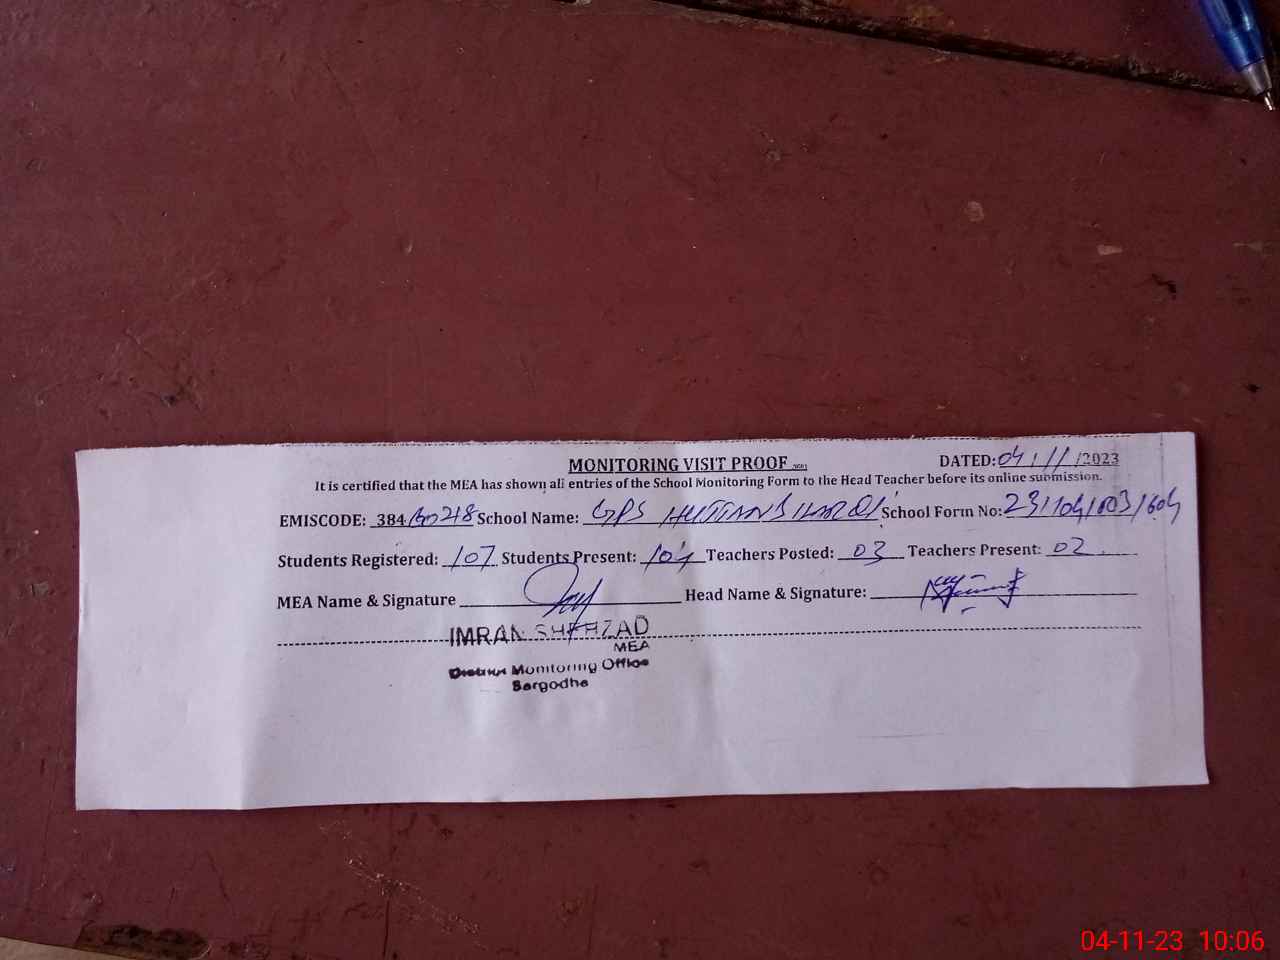 MONITORING VISIT PROOF
DATED: 04/11/2023
It is certified that the MEA has shown all entries of the School Monitoring Form to the Head Teacher before its online submission.
EMISCODE: 384 School Name: GPS School Form No: 23/104/603/604
Students Registered: 107 Students Present: 104 Teachers Posted: 03 Teachers Present: 02
MEA Name & Signature Head Name & Signature:
IMRAN SHEHZAD
MEA
District Monitoring Office
Sargodha
04-11-23 10:06